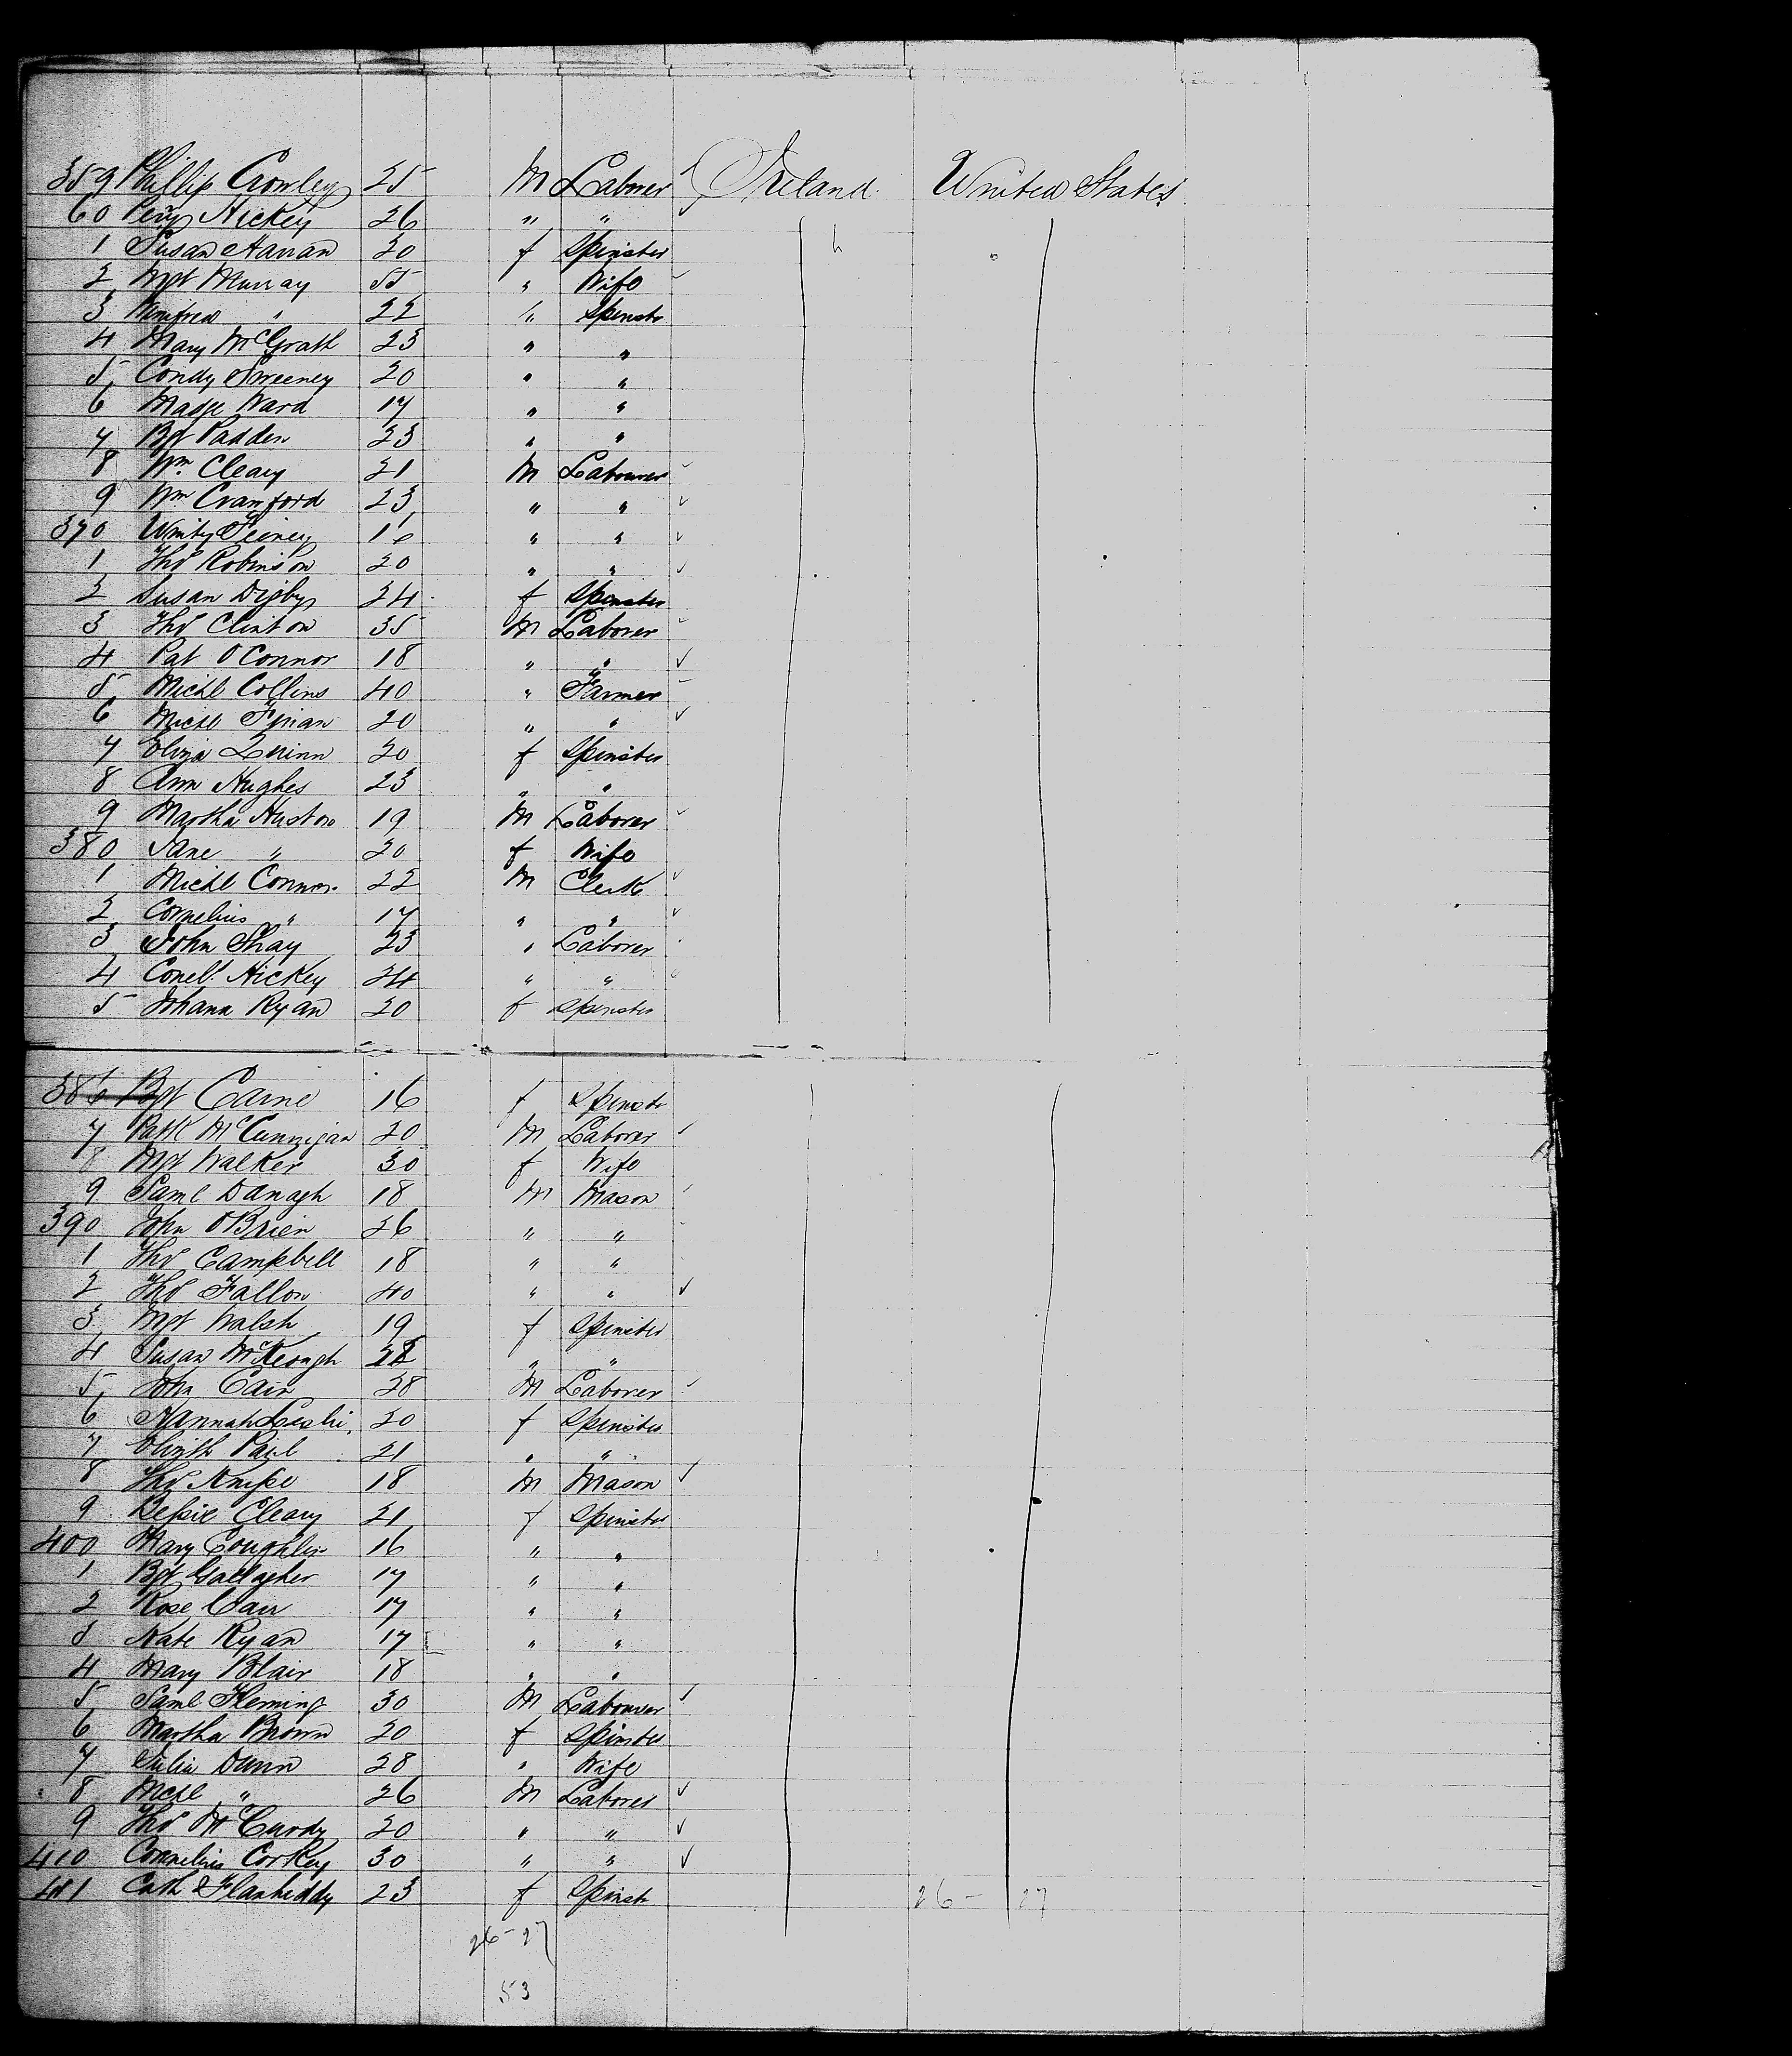 359 Phillip Crowley 25 M Laborer Ireland United States
60 Hickey 26 " "
1 Susan Harran 20 f Spinster
2 Mgt Murray 55 " Wife
3 Winifred " 22 " Spinstr
4 Mary McGrath 23 " "
5 Condy Sweeney 20 " "
6 Madge Ward 17 " "
7 Bgt Padden 23 " "
8 Wm Cleary 21 M Labourer
9 Wm Crawford 23 " "
370 Unity Feiney 16 " "
1 Thos Robinson 20 " "
2 Susan Digby 24 f Spinster
3 Thos Clinton 35 M Laborer
4 Pat O'Connor 18 " "
5 Michl Collins 40 " Farmer
6 Michl Finan 20 " "
7 Eliza Quinn 20 f Spinster
8 Ann Hughes 23 " "
9 Martha Huston 19 M Laborer
380 Jane " 20 f Wife
1 Michl Connor 22 M Clerk
2 Cornelius " 17 " "
3 John Shay 23 " Laborer
4 Conell Hickey 24 " "
5 Johana Ryan 20 f Spinster
386 Bgt Carne 16 f Spinstr
7 Patk McCunnigan 20 M Laborer
8 Mgt Walker 30 f Wife
9 Saml Danagh 18 M Mason
390 John O'Brien 26 " "
1 Thos Campbell 18 " "
2 Thos Fallon 40 " "
3 Mgt Walsh 19 f Spinster
4 Susan McKeough 22 " "
5 John Cain 28 M Laborer
6 Hannah Leslie 20 f Spinster
7 Elizth Paul 21 " "
8 Thos Knipe 18 M Mason
9 Bessie Cleary 21 f Spinster
400 Mary Coughlin 16 " "
1 Bgt Gallagher 17 " "
2 Rose Carr 17 " "
3 Kate Ryan 17 " "
4 Mary Blair 18 " "
5 Saml Fleming 30 M Labourer
6 Martha Brown 20 f Spinster
7 Julia Dunn 28 " Wife
8 Michl " 26 M Laborer
9 Thos McCurdy 20 " "
410 Cornelius Corkey 30 " "
411 Cath 23 f Spinstr 26- 27
26-27
53